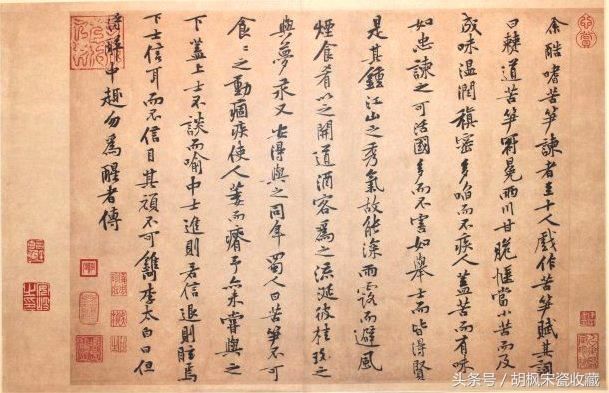 余酷嗜苦筍諫者至十人戲作苦筍賦其詞
曰僰道苦筍冠冕兩川甘脆愜當小苦而及
成味溫潤稹密多啗而不疾人蓋苦而有味
如忠諫之可活國多而不害如舉士而皆得賢
是其鍾江山之秀氣故能深雨露而避風
煙食肴以之開道酒客為之流涎彼桂玫之
與夢永又安得與之同年蜀人曰苦筍不可
食〻之動痼疾使人萎而瘠予亦未嘗與之
下蓋上士不談而喻中士進則若信退則眩焉
下士信耳而不信目其頑不可鐫李太白曰但
得醉中趣勿為醒者傳
头条号 / 胡枫宋瓷收藏